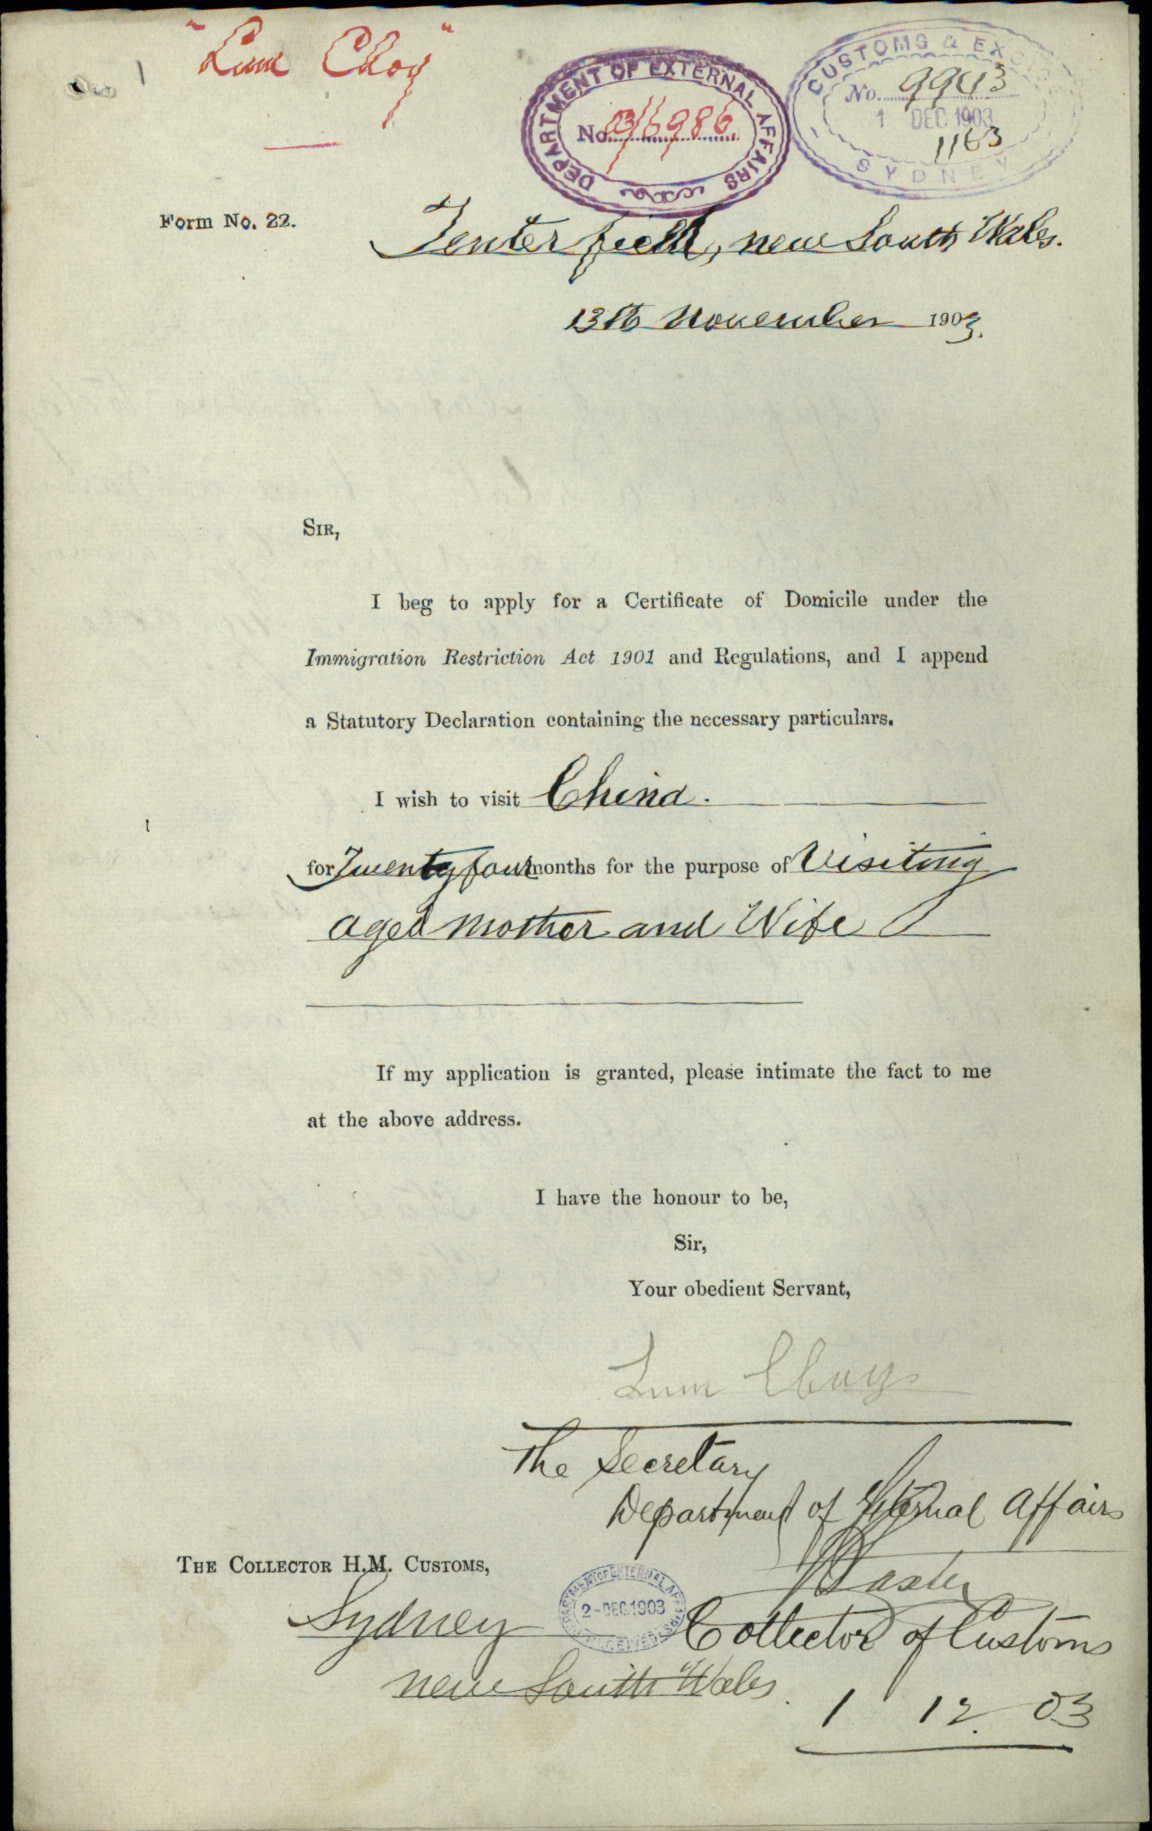 "Lum Choy"
1
DEPARTMENT OF EXTERNAL AFFAIRS
No. 03/6986
CUSTOMS & EXCISE
No. 9943
1 DEC 1903
1163
SYDNEY
Form No. 22.
Tenterfield, New South Wales.
13th November 1903.
SIR,
I beg to apply for a Certificate of Domicile under the
Immigration Restriction Act 1901 and Regulations, and I append
a Statutory Declaration containing the necessary particulars.
I wish to visit China.
for Twenty four months for the purpose of Visiting
aged mother and Wife
If my application is granted, please intimate the fact to me
at the above address.
I have the honour to be,
Sir,
Your obedient Servant,
Lum Choy
The Secretary
Department of External Affairs
THE COLLECTOR H.M. CUSTOMS,
Sydney
New South Wales.
2-DEC 1903
Collector of Customs
1 12. 03